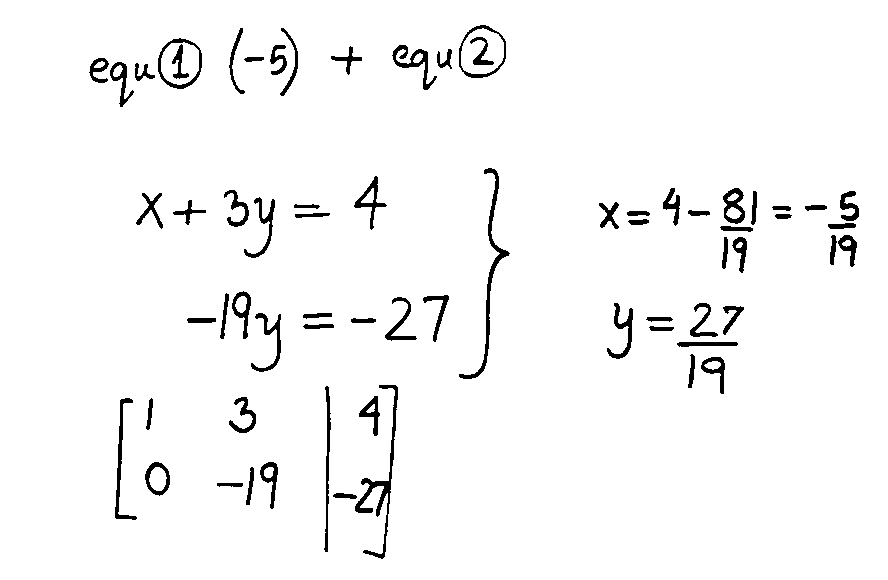 equ① (-5) + equ②
x + 3y = 4
-19y = -27
x = 4 - 81/19 = -5/19
y = 27/19
[1 3 | 4]
[0 -19 | -27]